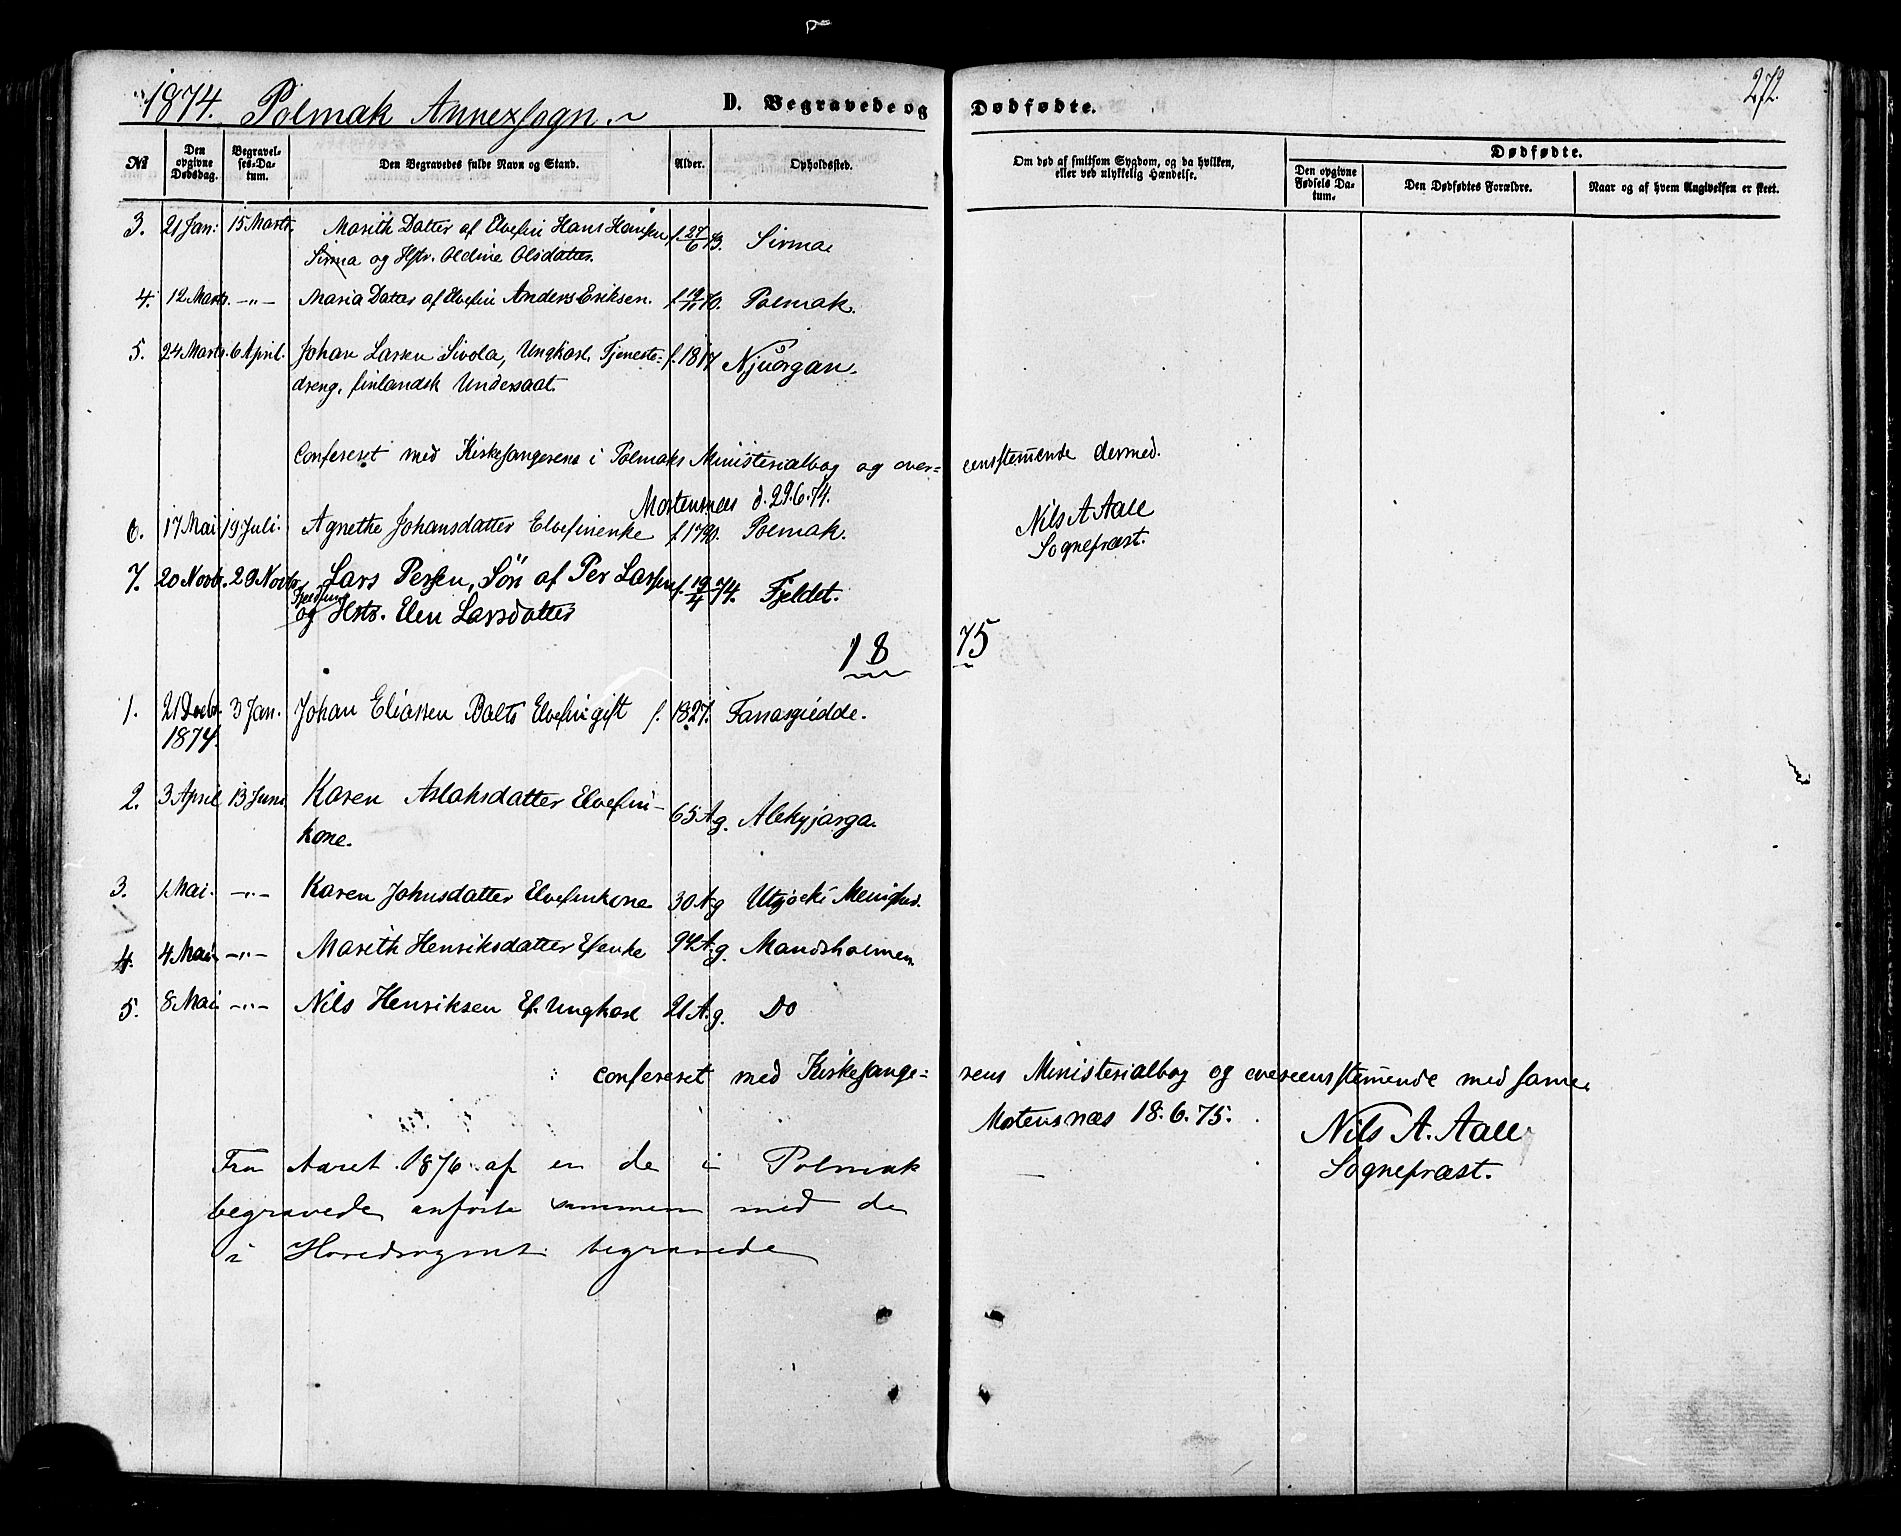 1874. Polmak Annexsogn. D. Begravede og Dødfødte. 272.
No Den opgivne Dødsdag. Begravelses-Datum. Den Begravedes fulde Navn og Stand. Alder. Opholdssted. Om død af smitsom Sygdom, og da hvilken, eller ved ulykkelig Hændelse. Dødfødte. Den opgivne Fødsels Datum. Den Dødfødtes Forældre. Naar og af hvem Angivelsen er skeet.
3. 21 Jan: 15 Marts. Marith Datter af Elvefin Hans Hansen f. 27/6 73. Sirma
Sirma og Hstr. Oldine Olsdatter.
4. 12 Marts. -"- Maria Datter af Elvefin Anders Eriksen. Polmak.
5. 24 Marts. 6 April. Johan Larsen Sivola, Ungkarl, Tjeneste= f. 1817 Njuorgan.
dreng, finlandsk Undersaat.
Confereret med Kirkesangerens i Polmaks Ministerialbog og over= eensstemende dermed.
Mortensnæs d. 29.6.74.
Nils A Aall
Sognepræst.
6. 17 Mai 19 Juli. Agnethe Johansdatter Elvefinenke f. 1790. Polmak.
7. 20 Novbr. 29 Novbr. Lars Persen, Søn af Per Larsen f. 19/4 74. Fjeldet.
Fjeldfin
og Hstr. Elen Larsdatter
18 75
1. 21 Decbr. 1874. 3 Jan. Johan Eliassen Balto Elvefin gift f. 1827. Fanasgiedde.
2. 3 April 13 Juni Karen Aslaksdatter Elvefin- 65 A g. Alekjarga.
kone.
3. 1 Mai. -"- Karen Johnsdatter Elvefinkone 30 A g Utsjocki Menighed.
4. 4 Mai -"- Marith Henriksdatter Ef enke 94 A. g. Mandsholmen
5. 8 Mai -"- Nils Henriksen Ef. Ungkarl 21 A. g. Do
confereret med Kirkesange= rens Ministerialbog og overeensstemende med samme
Mortensnæs 18.6.75.
Nils A. Aall
Sognepræst.
Fra Aaret 1876 af er de i Polmak
begravede anførte sammen med de
i Hovedsognet begravede